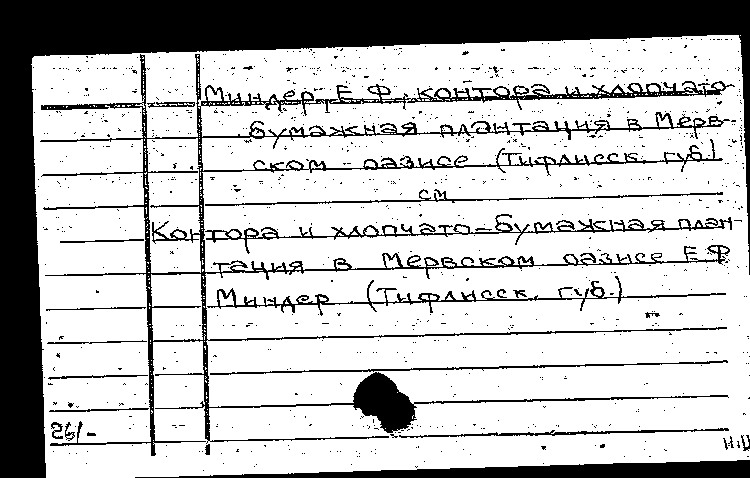 Миндер, Е Ф, контора и хлопчато-
бумажная плантация в Мерв-
ском оазисе (Тифлисск. губ.)
см.
Контора и хлопчато-бумажная план-
тация в Мервском оазисе Е Ф
Миндер (Тифлисск. губ.)
26/-